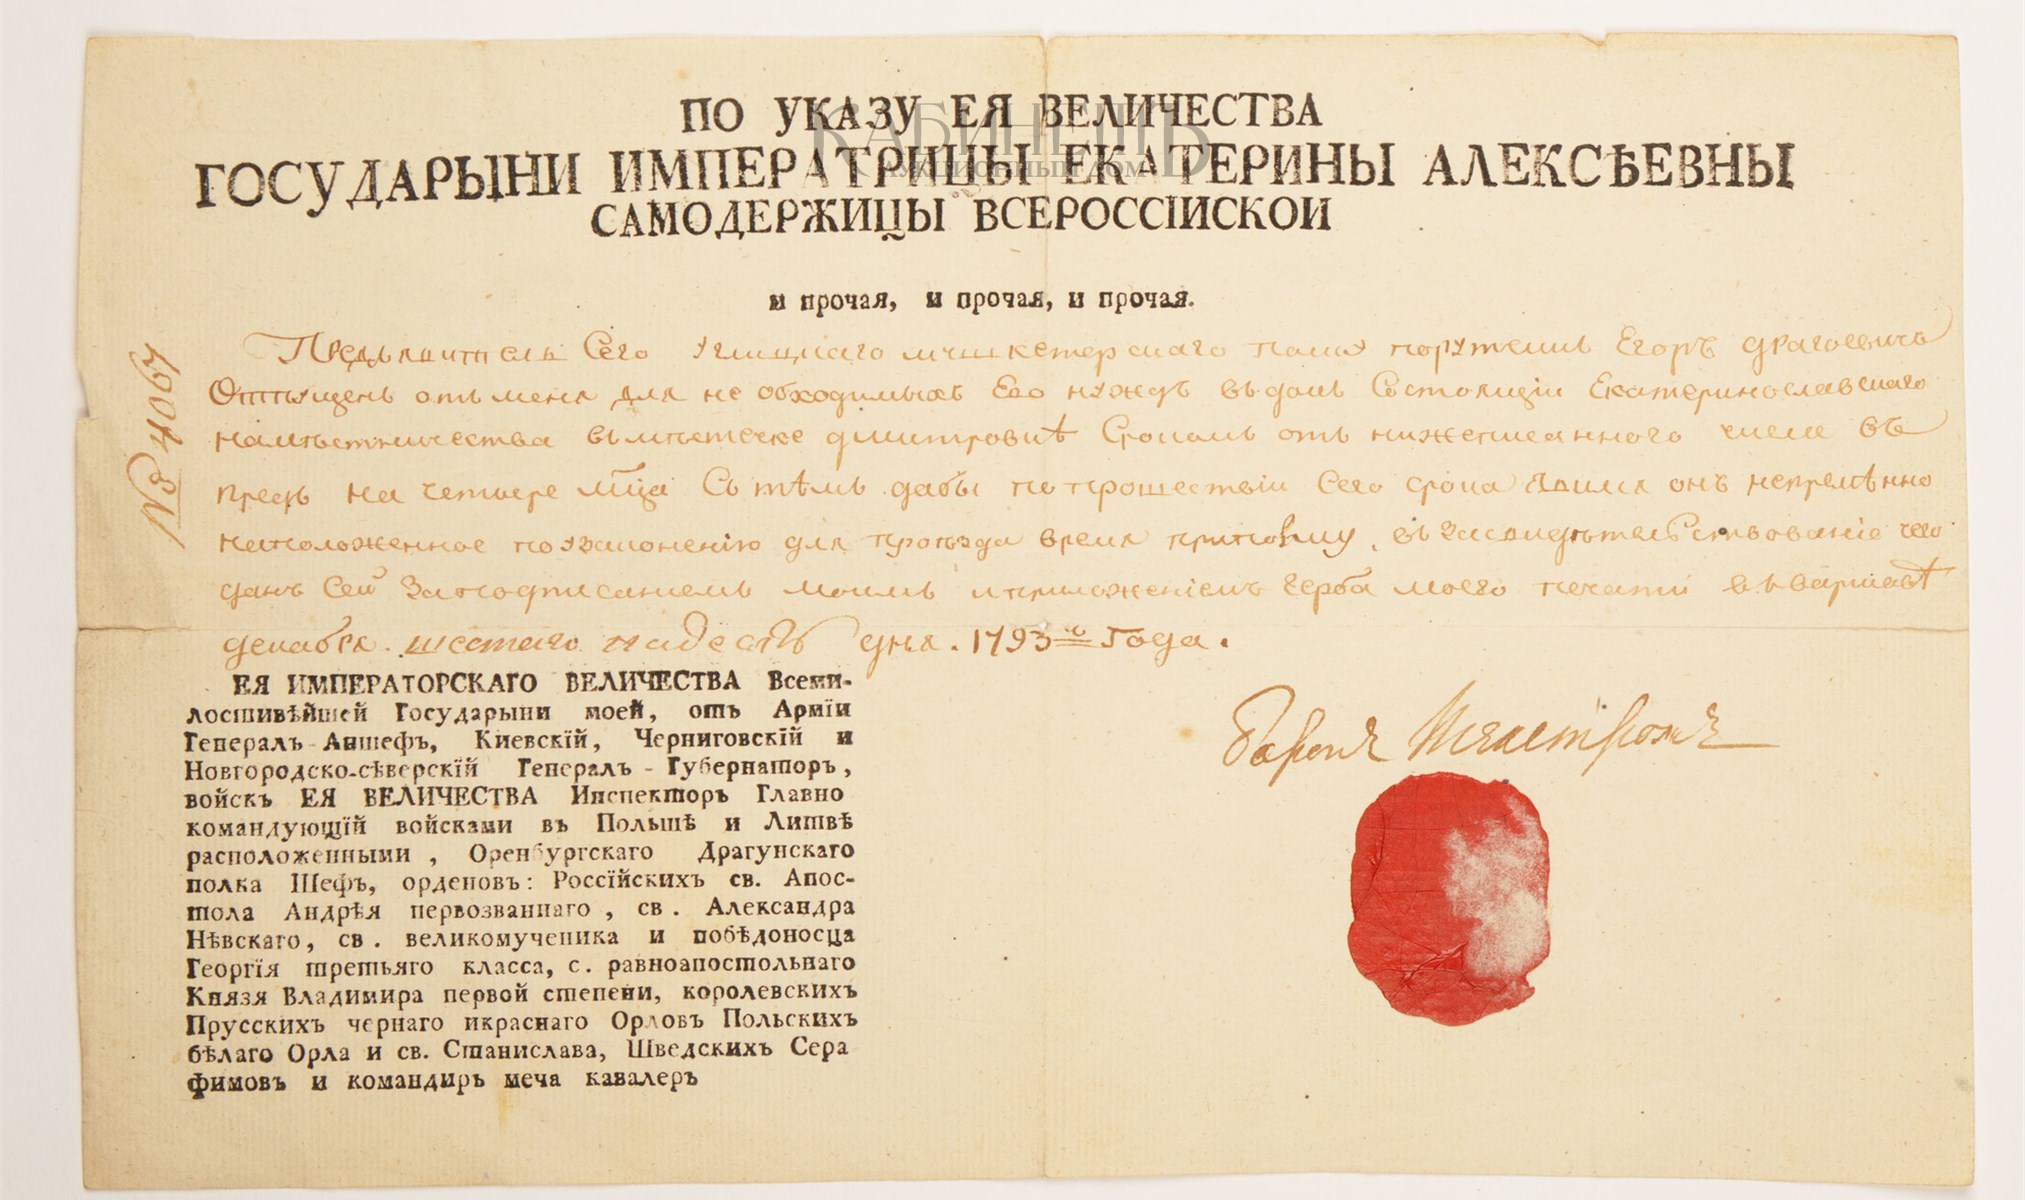 ПО УКАЗУ ЕЯ ВЕЛИЧЕСТВА
ГОСУДАРЫНИ ИМПЕРАТРИЦЫ ЕКАТЕРИНЫ АЛЕКСѢЕВНЫ
САМОДЕРЖИЦЫ ВСЕРОССІЙСКОЙ
КАБИНЕТЪ
АУКЦИОННЫЙ ДОМ
и прочая, и прочая, и прочая.
№ 4067
Предъявитель Сего Углицкаго мушкетерскаго полку порутчикъ Егоръ драгоевичъ
Отпущенъ отъ меня для не обходимыхъ Его нуждъ въ домъ Состоящій Екатеринославскаго
намѣстничества въ местечке дмитровкѣ Срокомъ отъ нижеписанного числа въ
предь на четыре мца Съ тѣмъ дабы по прошествіи Сего срока явился онъ непремѣнно
положенное по узаконенію для проезда время къ полку, въ Засвидѣтельствованіе чего
данъ Сей За подписаніемъ моимъ и приложеніемъ герба моего печати въ варшавѣ
декабря. шестаго надесять дня. 1793го Года.
ЕЯ ИМПЕРАТОРСКАГО ВЕЛИЧЕСТВА Всеми-
лостивѣйшей Государыни моей, отъ Арміи
Генералъ-Аншефъ, Киевскій, Черниговскій и
Новгородско-сѣверскій Генералъ-Губернаторъ,
войскъ ЕЯ ВЕЛИЧЕСТВА Инспекторъ Главно
командующій войсками въ Польшѣ и Литвѣ
расположенными, Оренбургскаго Драгунскаго
полка Шефъ, орденовъ: Россійскихъ св. Апос-
тола Андрѣя первозваннаго, св. Александра
Нѣвскаго, св. великомученика и побѣдоносца
Георгія третьяго класса, с. равноапостольнаго
Князя Владимира первой степени, королевскихъ
Прусскихъ чернаго икраснаго Орловъ Польскихъ
бѣлаго Орла и св. Станислава, Шведскихъ Сера
фимовъ и командиръ меча кавалеръ
баронъ Игелстромъ